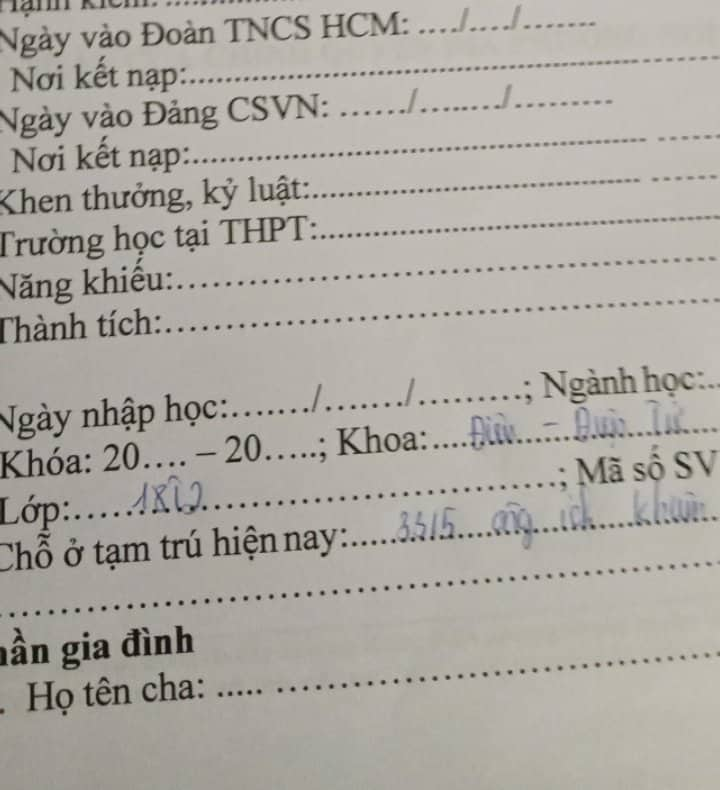 Ngày vào Đoàn TNCS HCM: ..../..../........
Nơi kết nạp:........................................
Ngày vào Đảng CSVN: ....../......../..........
Nơi kết nạp:........................................
Khen thưởng, kỷ luật:........................................
Trường học tại THPT:........................................
Năng khiếu:........................................
Thành tích:........................................
Ngày nhập học:......./......./..........; Ngành học:..
Khóa: 20.... – 20.....; Khoa:.... Điện - Điện Tử
Lớp:...... ..........; Mã số SV
Chỗ ở tạm trú hiện nay:..... 3515 ông ích khiêm
........................................
hần gia đình
. Họ tên cha: ........................................